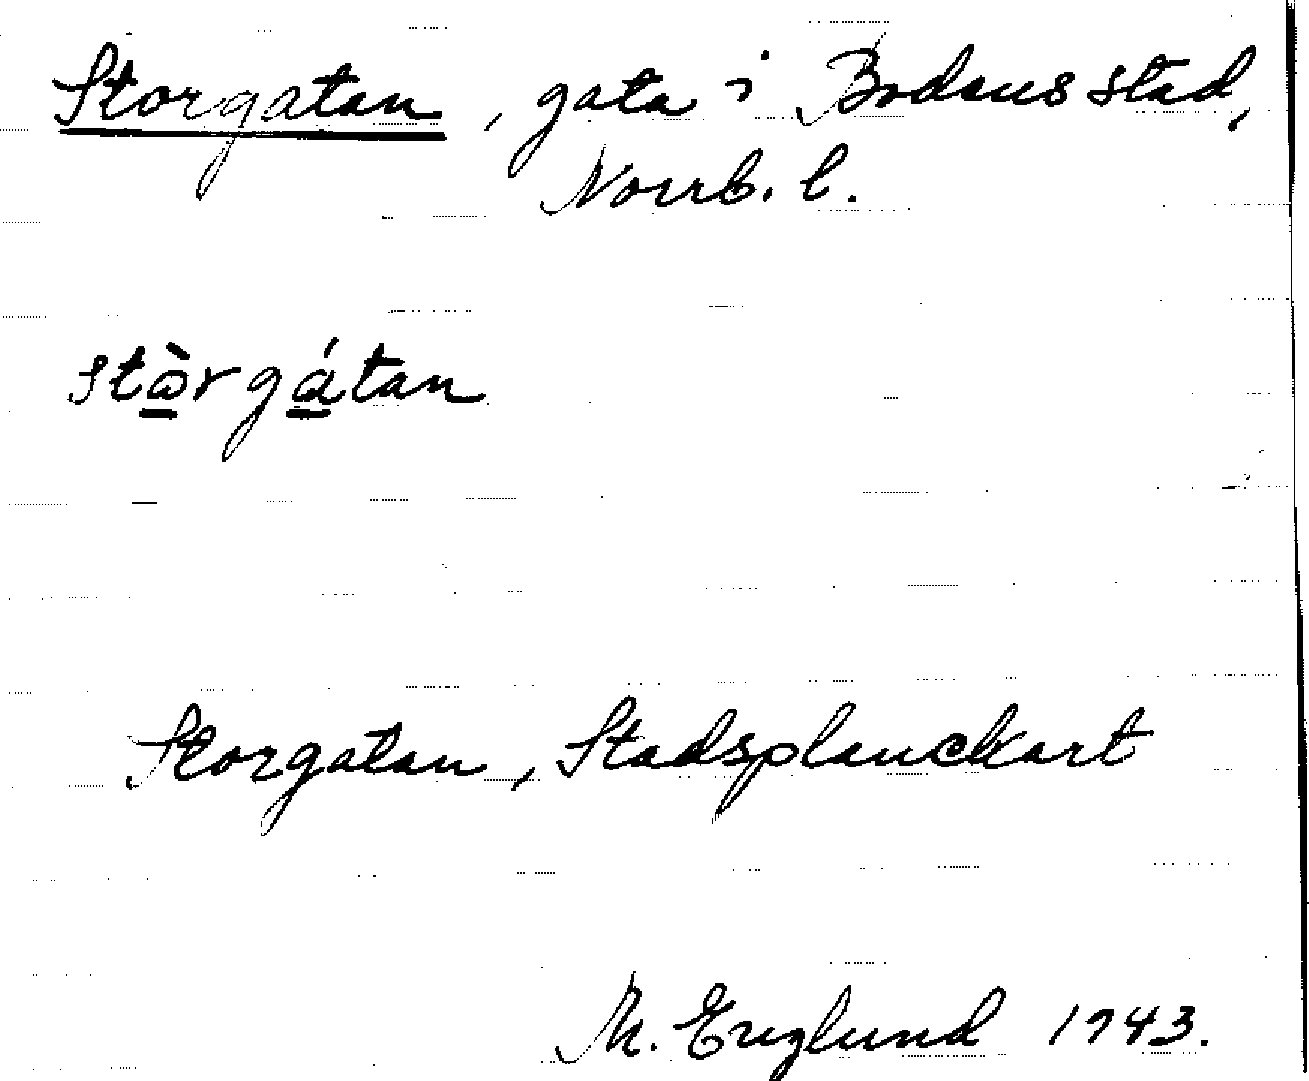 Storgatan, gata i Bodens stad,
Norrb. l.
stòrgátan
Storgatan, Stadsplanekart
M. Englund 1943.